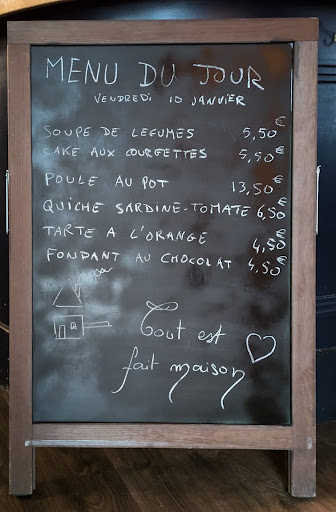 MENU DU JOUR
VENDREDI 10 JANVIER
SOUPE DE LEGUMES 5,50€
CAKE AUX COURGETTES 5,50€
POULE AU POT 13,50€
QUICHE SARDINE-TOMATE 6,50€
TARTE A L'ORANGE 4,50€
FONDANT AU CHOCOLAT 4,50€
Tout est
fait maison